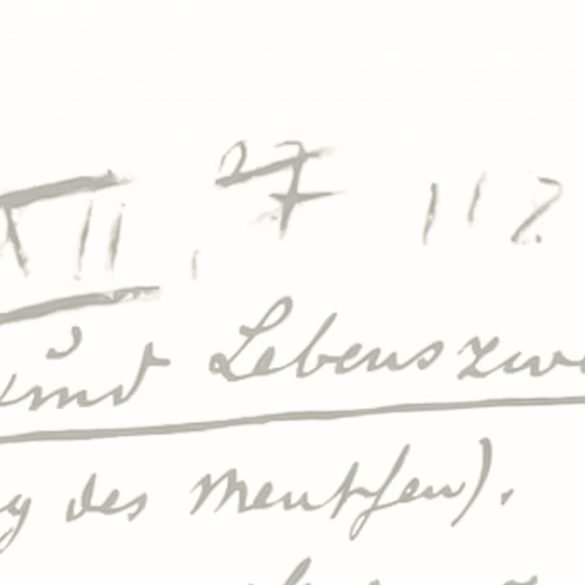 XII, 27 112
und Lebenszwe
g des Menschen).